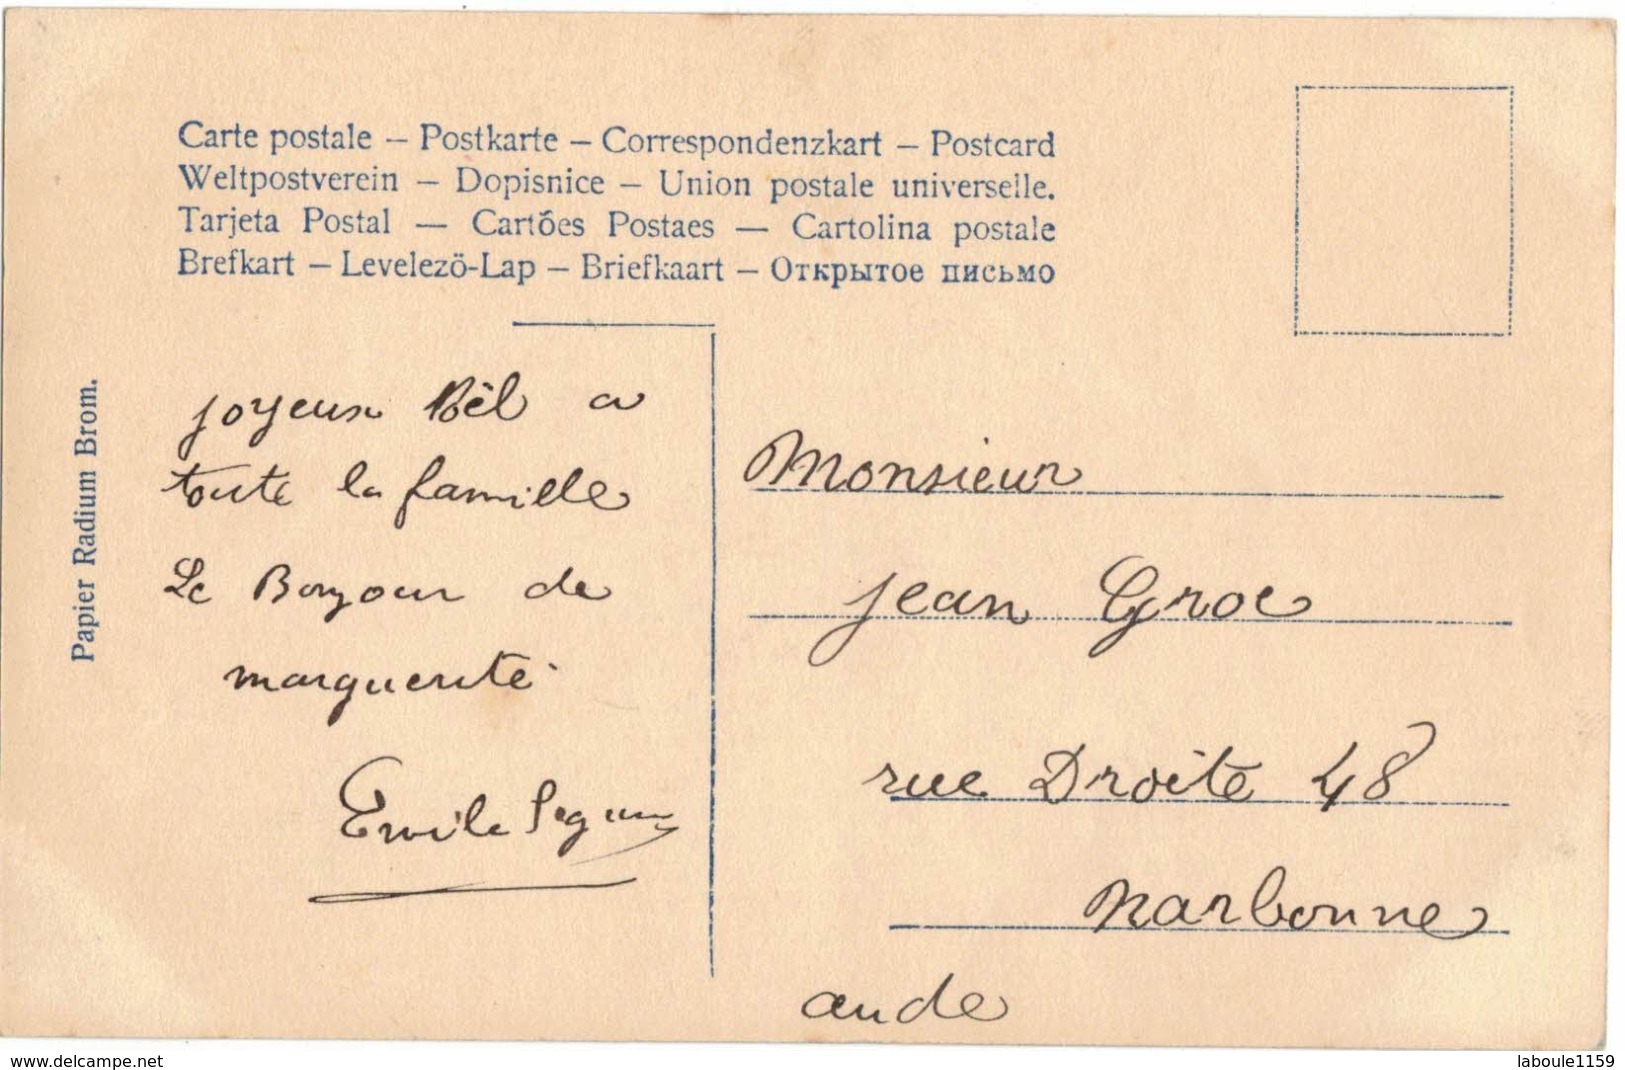 Carte postale – Postkarte – Correspondenzkart – Postcard
Weltpostverein – Dopisnice – Union postale universelle.
Tarjeta Postal — Cartões Postaes — Cartolina postale
Brefkart – Levelezö-Lap – Briefkaart – Открытое письмо
Papier Radium Brom.
joyeux Noël a
toute la famille
Le Bonjour de
marguerite
Emile
Monsieur
jean Groc
rue Droite 48
Narbonne
aude
www.delcampe.net
laboule1159